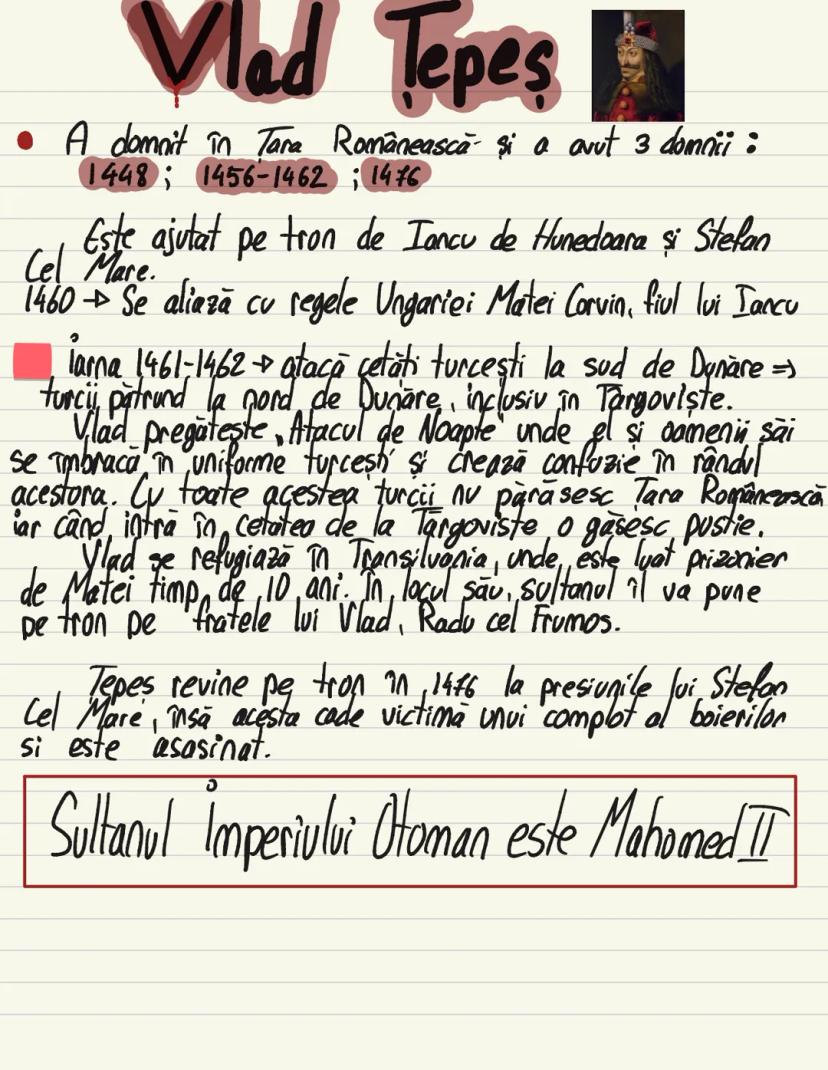 Vlad Țepeș
• A domnit în Țara Românească și a avut 3 domnii :
1448 ; 1456-1462 ; 1476
Este ajutat pe tron de Iancu de Hunedoara și Stefan
Cel Mare.
1460 → Se aliază cu regele Ungariei Matei Corvin, fiul lui Iancu
iarna 1461-1462 → atacă cetăți turcești la sud de Dunăre ⇒
turcii pătrund la nord de Dunăre, inclusiv în Târgoviște.
Vlad pregătește „Atacul de Noapte" unde el și oamenii săi
se îmbracă în uniforme turcești și crează confuzie în rândul
acestora. Cu toate acestea turcii nu părăsesc Țara Românească
iar când intră în cetatea de la Târgoviște o găsesc pustie.
Vlad se refugiază în Transilvania, unde este luat prizonier
de Matei timp de 10 ani. În locul său, sultanul îl va pune
pe tron pe fratele lui Vlad, Radu cel Frumos.
Țepeș revine pe tron în 1476 la presiunile lui Stefan
Cel Mare, însă acesta cade victimă unui complot al boierilor
si este asasinat.
Sultanul Imperiului Otoman este Mahomed II